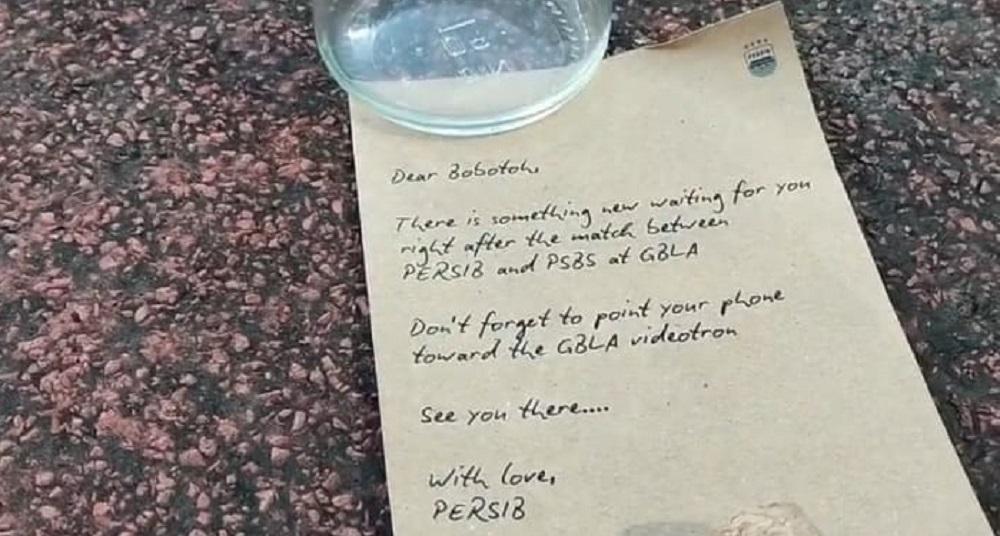 PERSIB
Dear Bobotoh,
There is something new waiting for you
right after the match between
PERSIB and PSBS at GBLA
Don't forget to point your phone
toward the GBLA videotron
See you there....
With love,
PERSIB